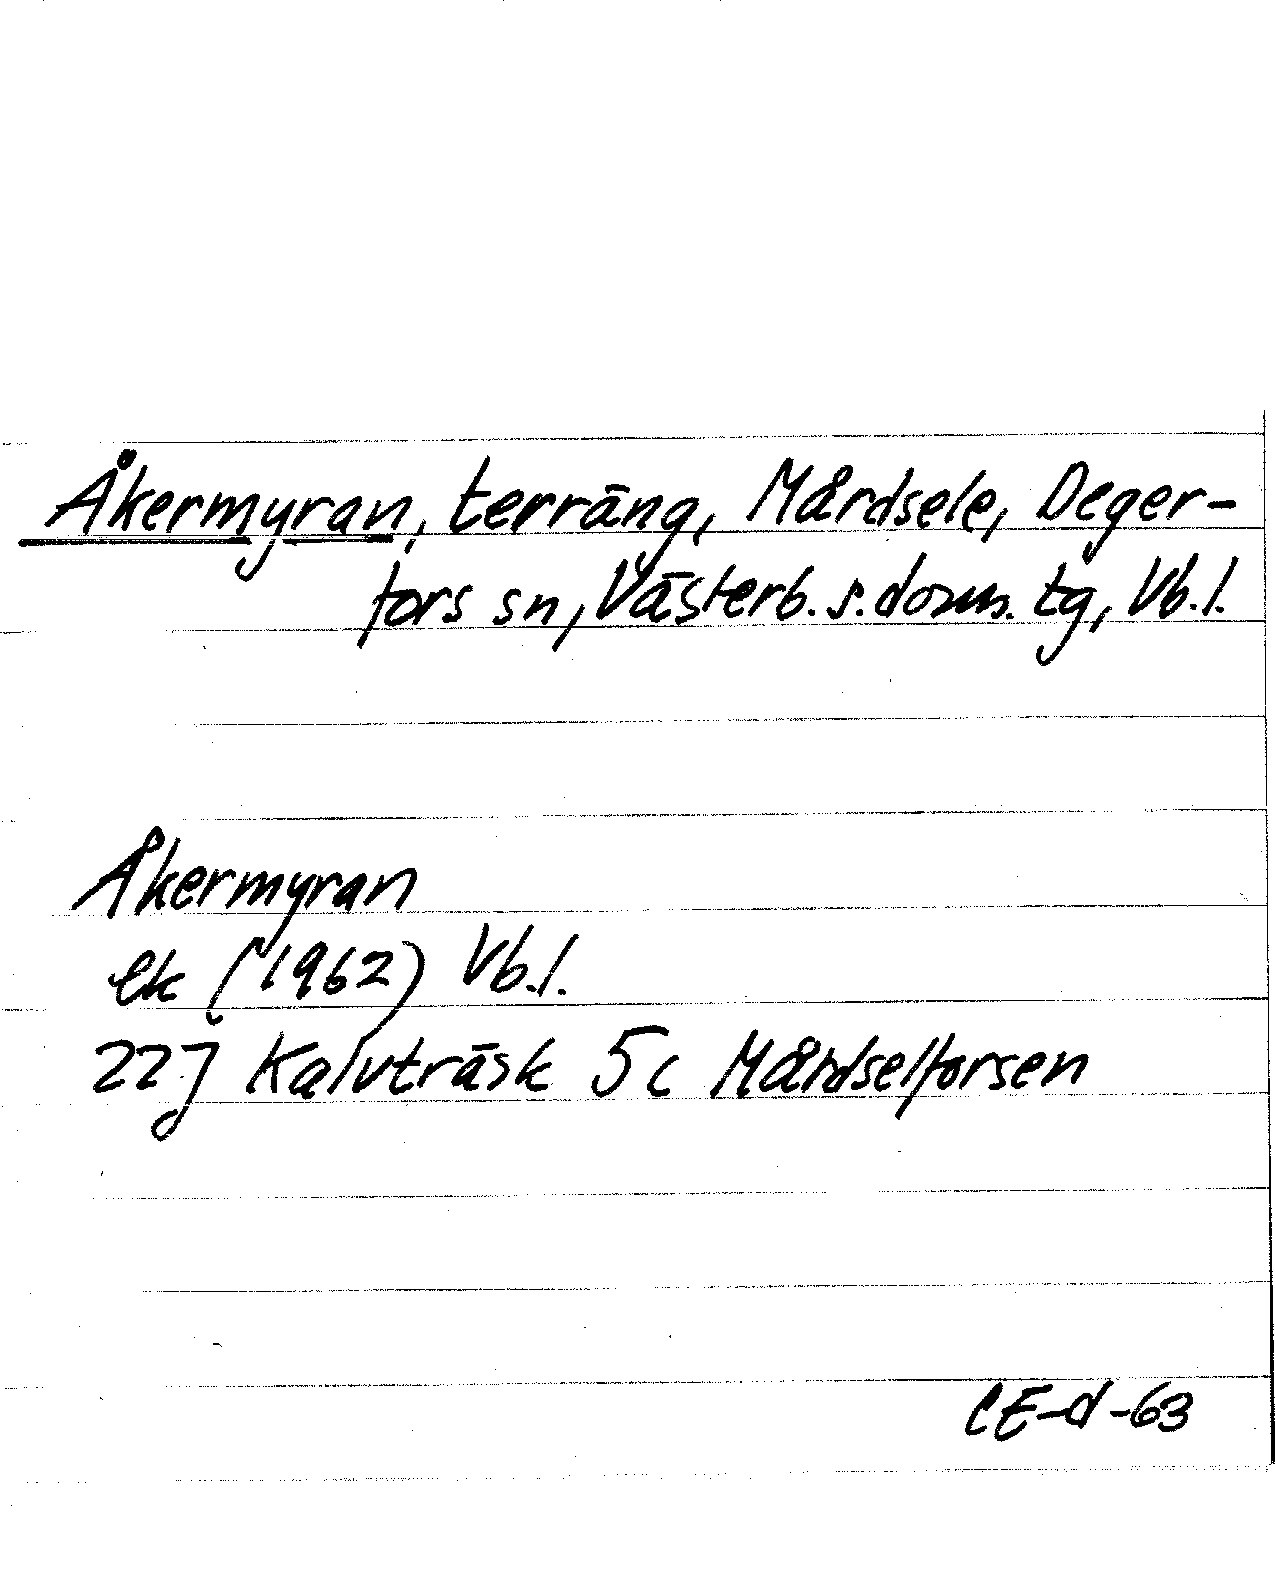 Åkermyran, terräng, Mårdsele, Deger-
fors sn, Västerb. s. doms. tg, Vb. l.
Åkermyran
ek (1962) Vb. l.
22J Kalvträsk 5c Mårdselforsen
CE-d-63